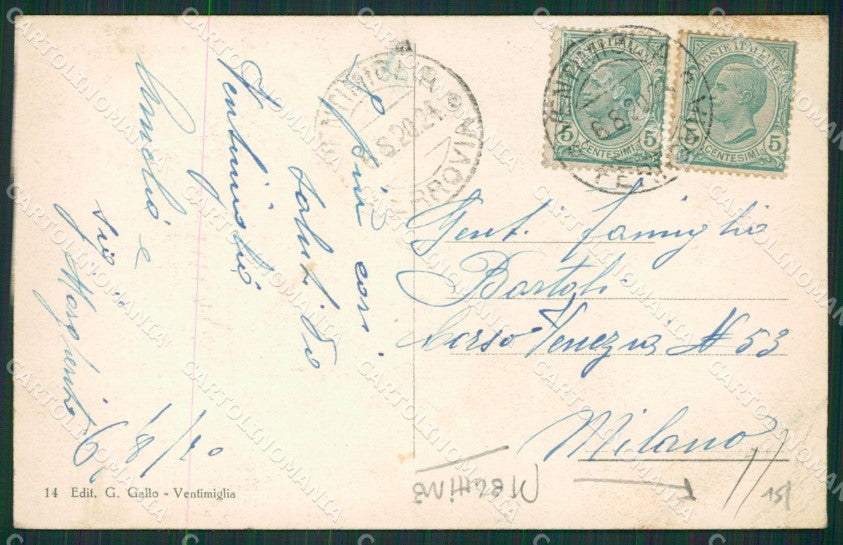 I più cari
saluti da
Ventimiglia
Amelia e
Margherita
6/8/20
14 Edit. G. Gallo - Ventimiglia
VENTIMIGLIA
6.8.20.21
FERROVIA
POSTE ITALIANE
5 CENTESIMI 5
POSTE ITALIANE
5 CENTESIMI 5
Gent. Famiglia
Bartoli
Corso Venezia N 53
Milano
15/
CARTOLINOMANIA